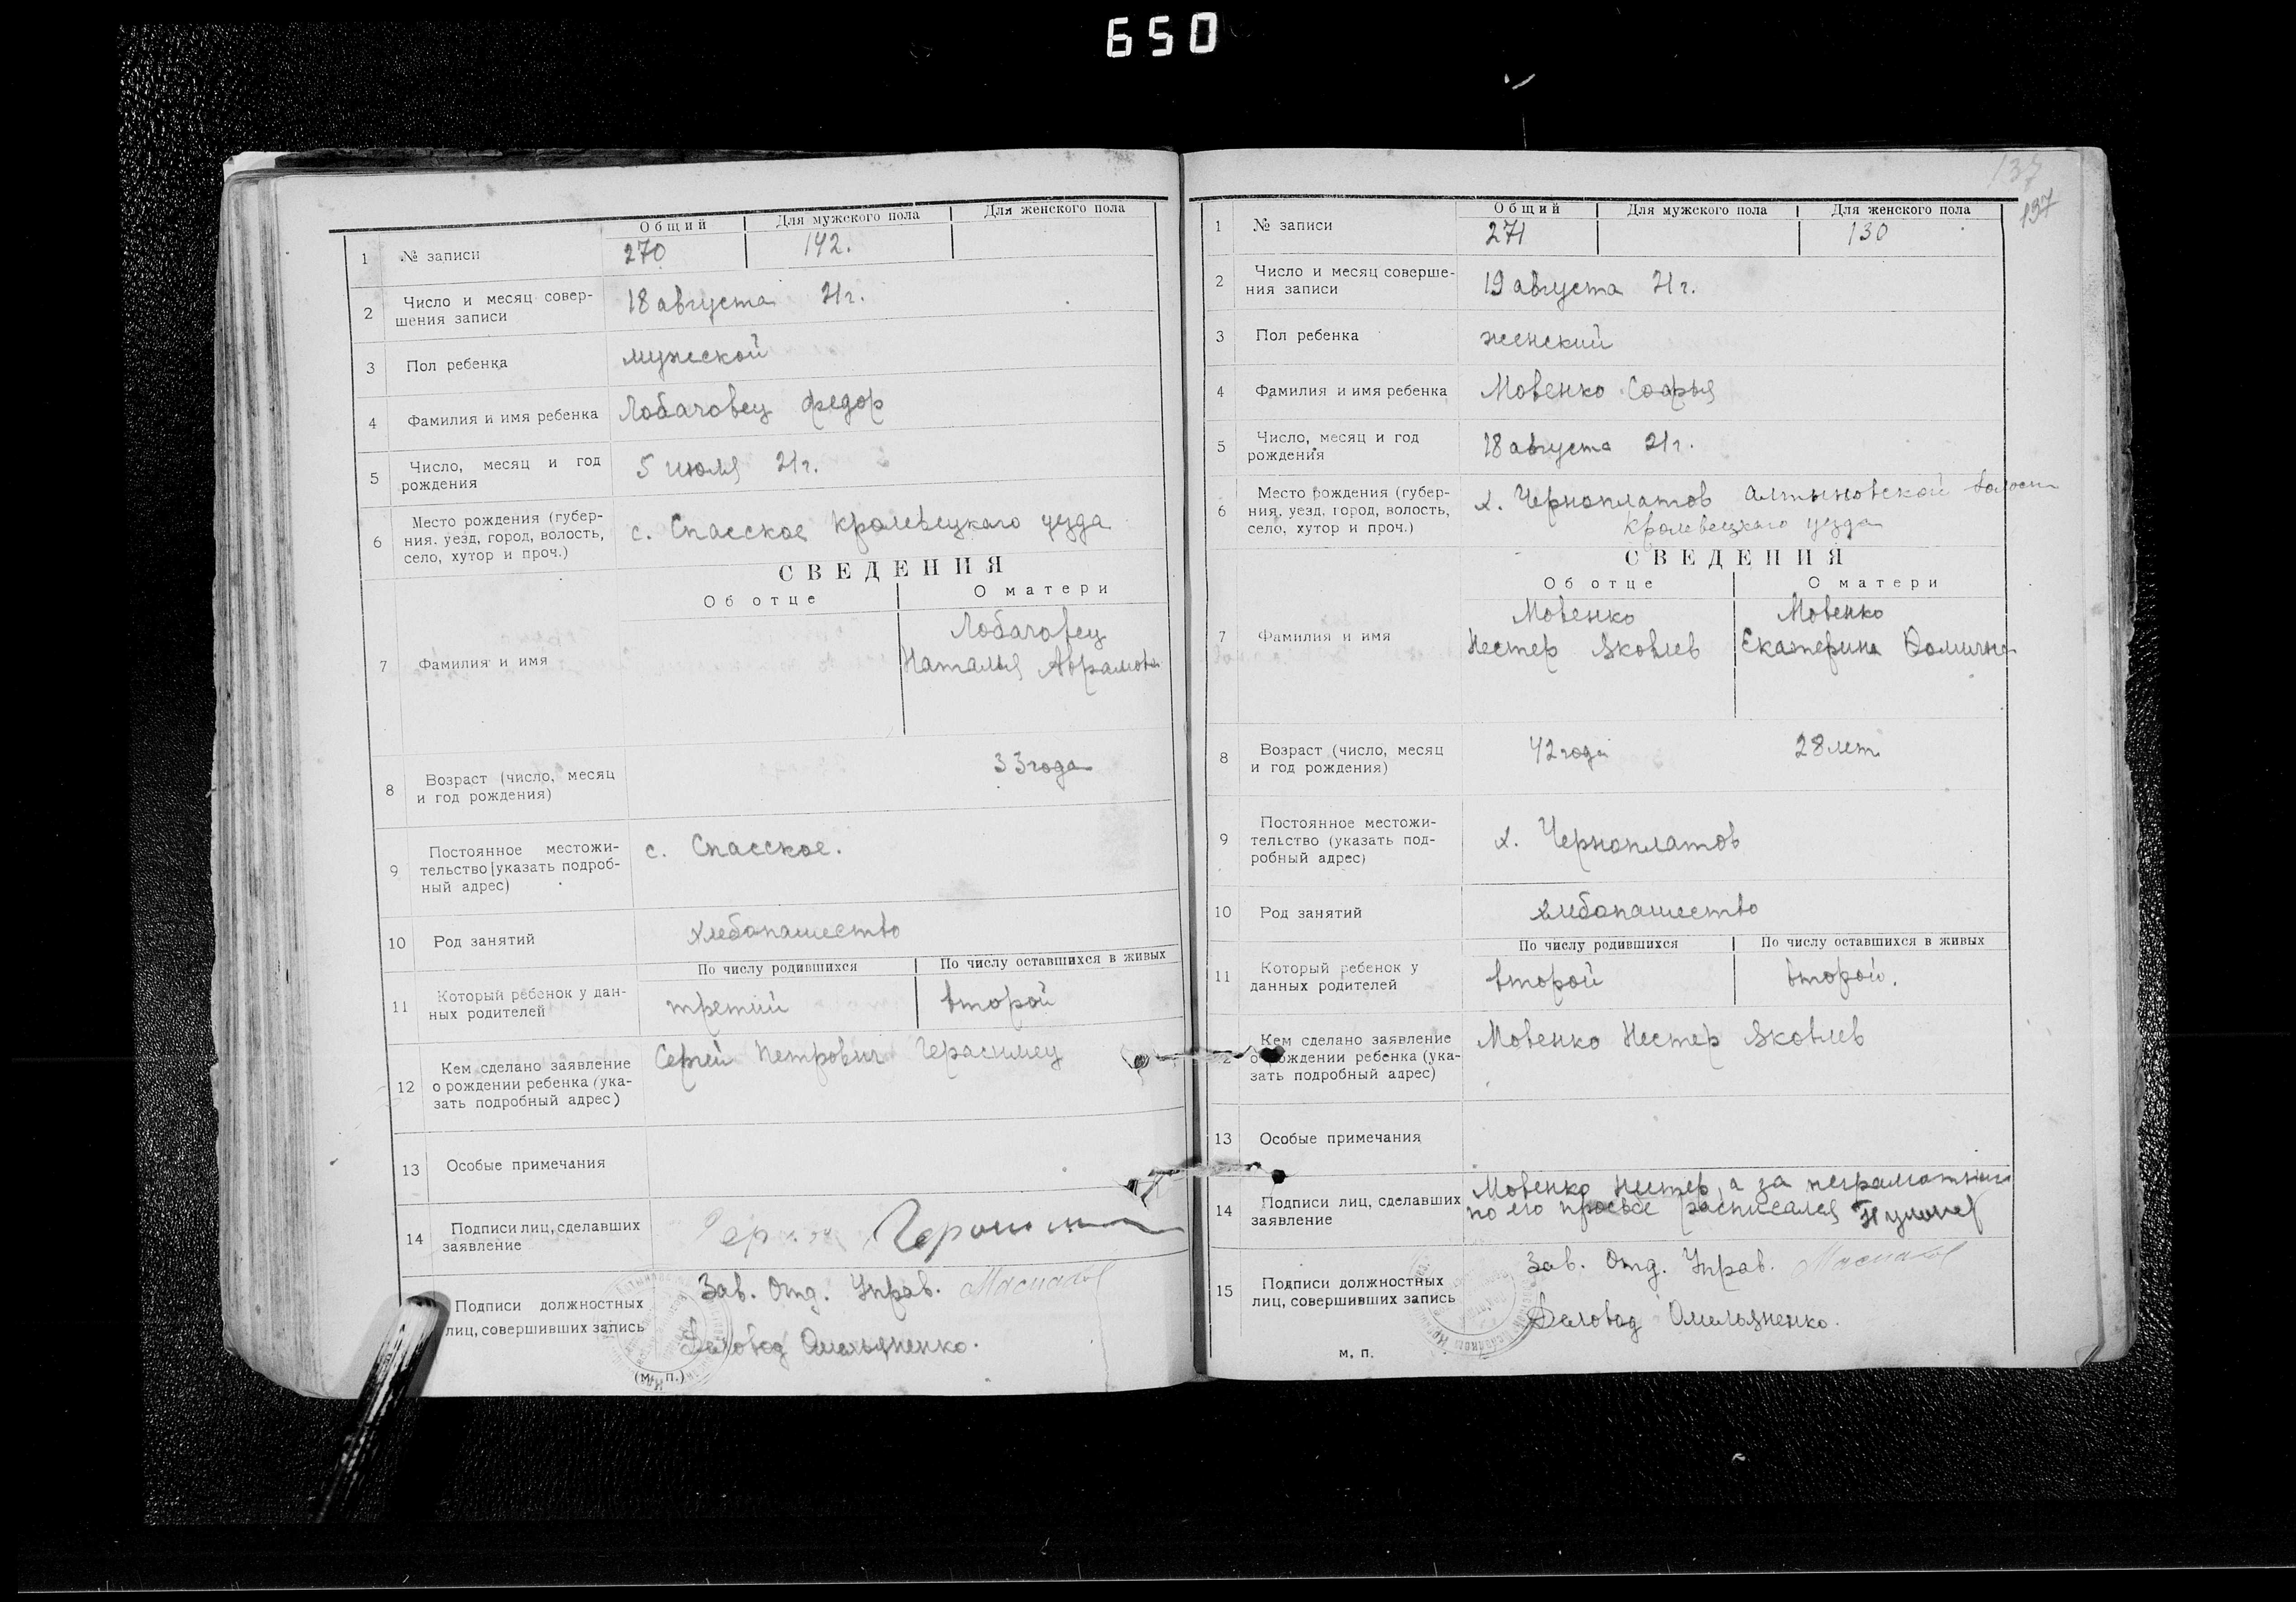 650
Общий Для мужского пола Для женского пола
1 № записи 270 142.
2 Число и месяц совер-
шения записи 18 августа 21 г.
3 Пол ребенка мужеской
4 Фамилия и имя ребенка Лобачовец Федор
5 Число, месяц и год
рождения 5 июля 21 г.
6 Место рождения (губер-
ния, уезд, город, волость,
село, хутор и проч.) с. Спасское Кролевецкаго уезда
СВЕДЕНИЯ
Об отце О матери
7 Фамилия и имя Лобачовец
Наталья
8 Возраст (число, месяц
и год рождения) 33 года
9 Постоянное местожи-
тельство [указать подроб-
ный адрес) с. Спасское.
10 Род занятий хлебопашество
По числу родившихся По числу оставшихся в живых
11 Который ребенок у дан-
ных родителей третий второй
12 Кем сделано заявление
о рождении ребенка (ука-
зать подробный адрес) Сергей Петрович Герасимец
13 Особые примечания
14 Подписи лиц, сделавших
заявление
Подписи должностных
лиц, совершивших запись Зав. Отд. Управ.
Деловод Омельяненко.
(м. п.)
137
137
Общий Для мужского пола Для женского пола
1 № записи 271 130
2 Число и месяц соверше-
ния записи 19 августа 21 г.
3 Пол ребенка женский
4 Фамилия и имя ребенка Мовенко Софья
5 Число, месяц и год
рождения 18 августа 21 г.
6 Место рождения (губер-
ния, уезд, город, волость,
село, хутор и проч.) х. Черноплатов Алтыновской волости
Кролевецкаго уезда
СВЕДЕНИЯ
Об отце О матери
7 Фамилия и имя Мовенко Мовенко
Нестер Яковлев Екатерина
8 Возраст (число, месяц
и год рождения) 42 года 28 лет
9 Постоянное местожи-
тельство (указать под-
робный адрес) х. Черноплатов
10 Род занятий хлебопашество
По числу родившихся По числу оставшихся в живых
11 Который ребенок у
данных родителей второй второй.
Кем сделано заявление
о рождении ребенка (ука-
зать подробный адрес) Мовенко Нестер Яковлев
13 Особые примечания
14 Подписи лиц, сделавших
заявление Мовенко Нестер, а за
по его просьбе расписался
15 Подписи должностных
лиц, совершивших запись Зав. Отд. Управ.
Деловод Омельяненко.
м. п.